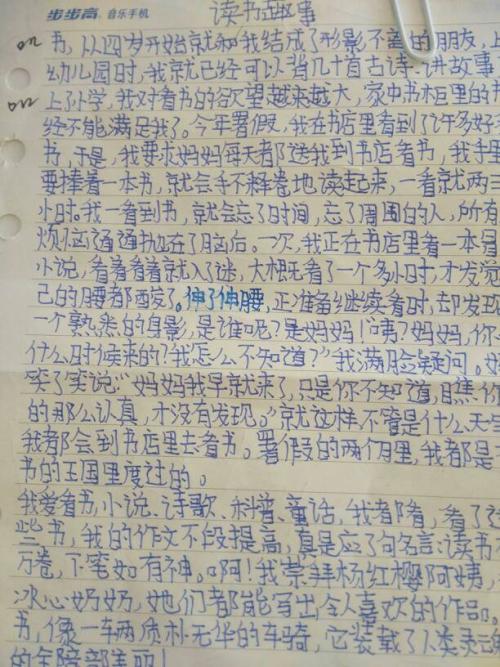 步步高 音乐手机
读书趣事
书，从四岁开始就和我结成了形影不离的朋友，上
幼儿园时，我就已经可以背几十首古诗、讲故事
上了小学，我对看书的欲望越来越大，家中书柜里的书
经不能满足我了。今年署假，我在书店里看到了许多好
书，于是，我要求妈妈每天都送我到书店看书，我手里
要捧着一本书，就会手不释卷地读起来，一看就两三
小时。我一看到书，就会忘了时间，忘了周围的人，所有
烦恼通通抛在了脑后。一次，我正在书店里看一本冒
小说，看着看着就入了迷，大概看了一个多小时，才发觉
己的腰都酸了。伸了伸腰，正准备继续看时，却发现
一个熟悉的身影，是谁呢？是妈妈！咦？妈妈，你
什么时候来的？我怎么不知道？”我满脸疑问。妈
笑了笑说：“妈妈我早就来了，只是你不知道，瞧你
的那么认真，才没有发现。”就这样，不管是什么天气
我都会到书店里去看书。署假的两个月里，我都是
书的王国里度过的。
我爱看书，小说、诗歌、科普、童话，我都看，看了这
些书，我的作文不段提高，真是应了句名言：读书
万卷，下笔如有神。啊！我崇拜杨红樱阿姨，
冰心奶奶，她们都能写出令人喜欢的作品。
书，像一车两质朴无华的车骑，它装载了人类灵
的全部美丽！